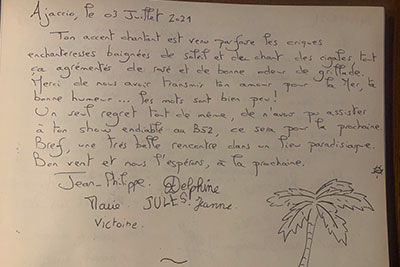 Ajaccio, le 03 Juillet 2021
Ton accent chantant est venu parfaire les criques
enchanteresses baignées de soleil et du chant des cigales tout
ça agrémentés de rosé et de bonne odeur de grillade.
Merci de nous avoir transmis ton amour pour la Mer, ta
bonne humeur ... les mots sont bien peu !
Un seul regret tout de même, de n'avoir pu assister
à ton show endiablé au B52, ce sera pour la prochaine.
Bref, une très belle rencontre dans un lieu paradisiaque.
Bon vent et nous l'espérons, à la prochaine.
Jean-Philippe. Delphine
Marie. JULES. Jeanne.
Victoine.